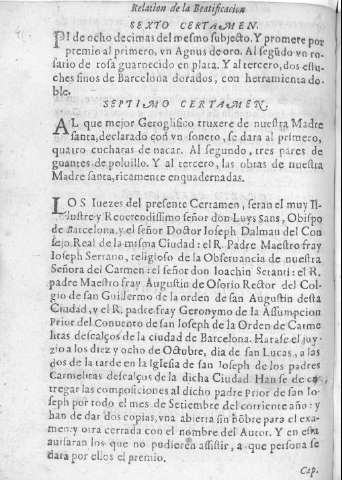 Relation de la Beatificacion
SEXTO CERTAMEN.
PI de ocho decimas del mesmo subjecto. Y promete por
premio al primero, vn Agnus de oro. Al segūdo vn ro-
sario de rosa guarnecido en plata. Y al tercero, dos estu-
ches finos de Barcelona dorados, con herramienta do-
ble.
SEPTIMO CERTAMEN.
AL que mejor Geroglifico truxere de nuestra Madre
santa, declarado con vn soneto, se dara al primero,
quatro cucharas de nacar. Al segundo, tres pares de
guantes de poluillo. Y al tercero, las obras de nuestra
Madre santa, ricamente enquadernadas.
LOS Iuezes del presente Certamen, seran el muy Il-
lustre y Reuerendissimo señor don Luys Sans, Obispo
de Barcelona, y el señor Doctor Ioseph Dalmau del Con
sejo Real de la misma Ciudad: el R. Padre Maestro fray
Ioseph Serrano, religioso de la Obseruancia de nuestra
Señora del Carmen: el señor don Ioachin Setanti: el R.
padre Maestro fray Augustin de Osorio Rector del Col-
gio de san Guillermo de la orden de san Augustin desta
Ciudad, y el R. padre fray Geronymo de la Assumpcion
Prior del Conuento de san Ioseph de la Orden de Carme
litas descalços de la ciudad de Barcelona. Harase el juy-
zio a los diez y ocho de Octubre, dia de san Lucas, a las
dos de la tarde en la Iglesia de san Ioseph de los padres
Carmelitas descalços de la dicha Ciudad. Han se de en-
tregar las composiciones al dicho padre Prior de san Io-
seph por todo el mes de Setiembre del corriente año: y
han de dar dos copias, vna abierta sin nōbre para el exa-
men: y otra cerrada con el nombre del Autor. Y en esta
auisaran los que no pudieren assistir, a que persona se
dara por ellos el premio.
Cap.